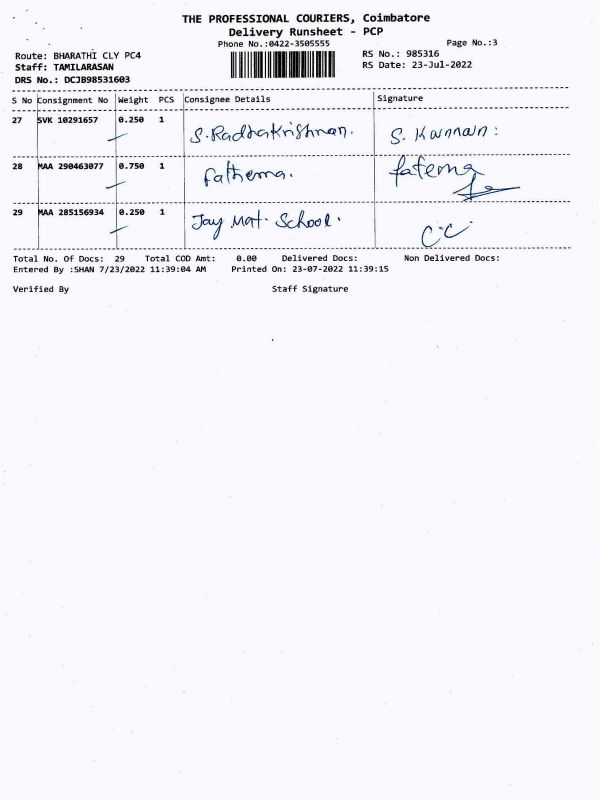 THE PROFESSIONAL COURIERS, Coimbatore
Delivery Runsheet - PCP
Phone No.:0422-3505555
Page No.:3
Route: BHARATHI CLY PC4
Staff: TAMILARASAN
DRS No.: DCJB98531603
RS No.: 985316
RS Date: 23-Jul-2022
S No Consignment No Weight PCS Consignee Details Signature
27 SVK 10291657 0.250 1 S.Radhakrishnan. S. Kannan:
28 MAA 290463077 0.750 1 Fathema. fatema
29 MAA 285156934 0.250 1 Jay Mat. School.
Total No. Of Docs: 29 Total COD Amt: 0.00 Delivered Docs: Non Delivered Docs:
Entered By :SHAN 7/23/2022 11:39:04 AM Printed On: 23-07-2022 11:39:15
Verified By Staff Signature